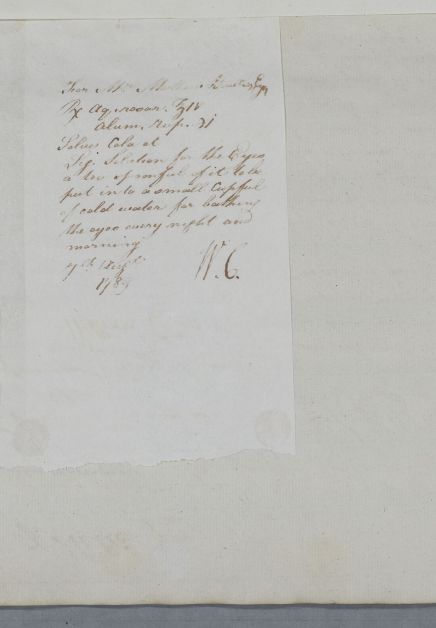 For Mr
Rx Aq. rosar. ℥iv
Alum. Rup. ʒi
Solve, Cola et
Sig. Solution for the Eyes
a tea spoonful of it to be
put into a small Cupful
of cold water for bathing
the eyes every night and
morning
7th Sept
1789 W. C.